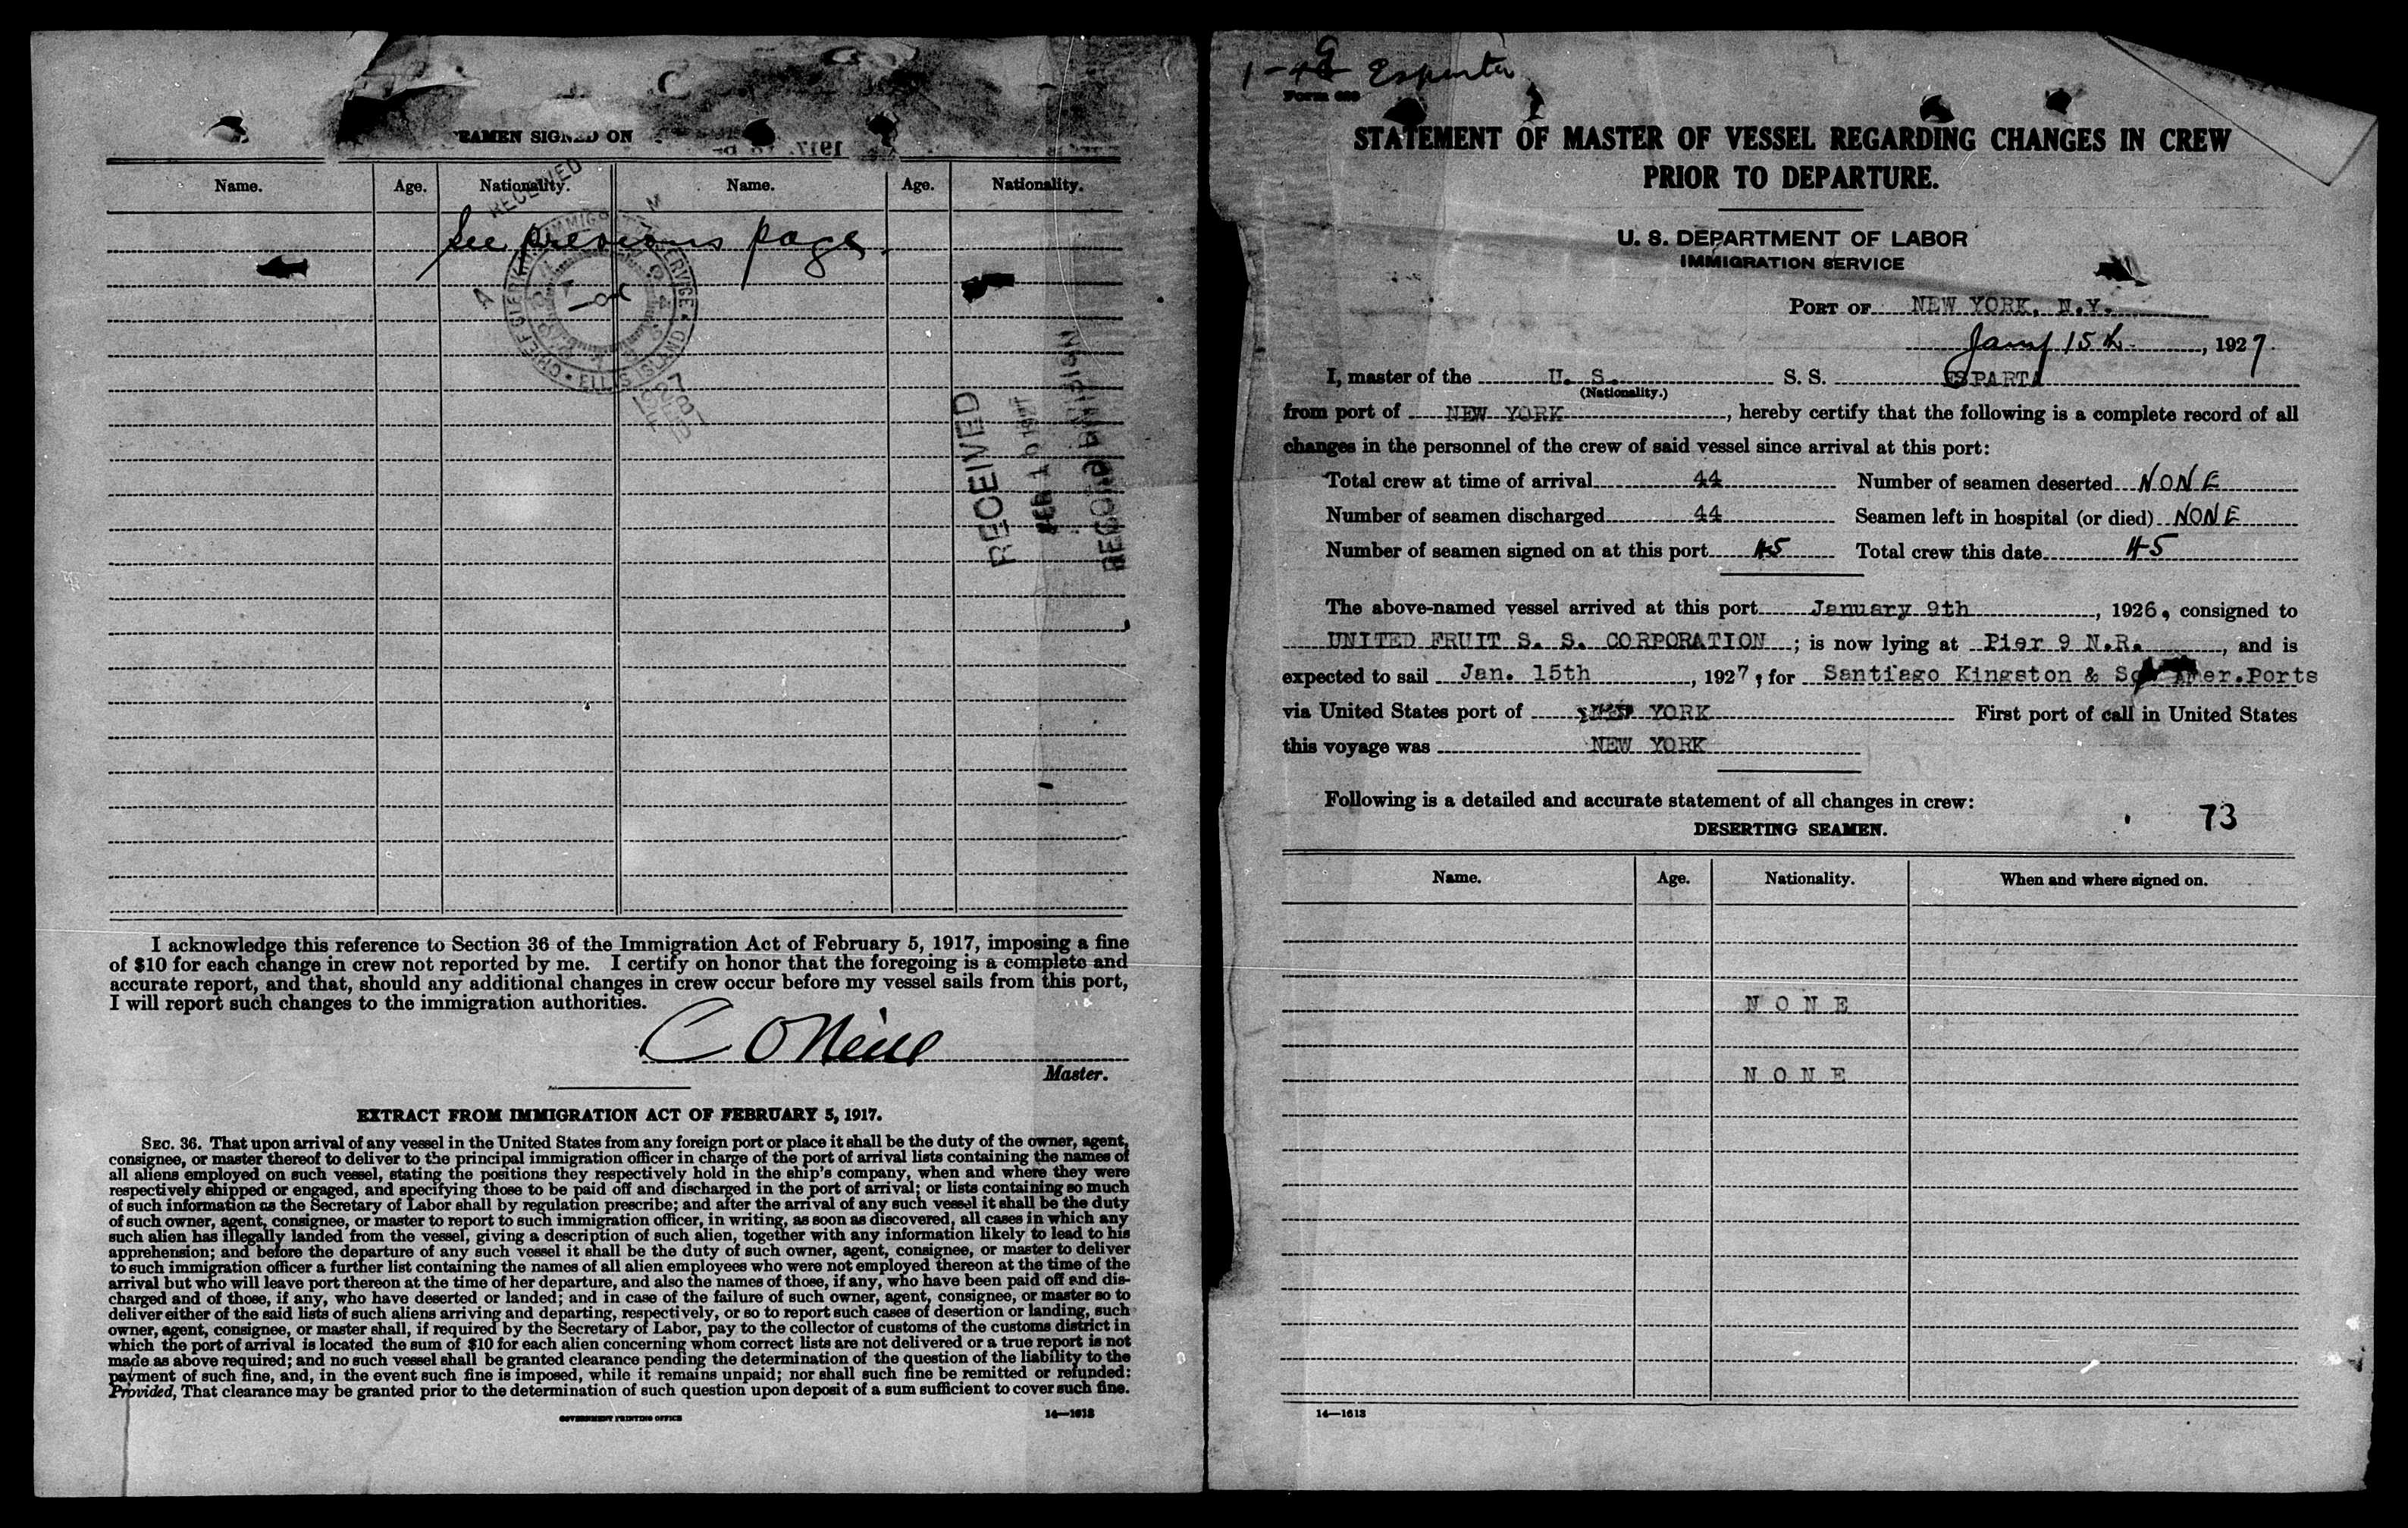 SEAMEN SIGNED ON
Name. Age. Nationality. Name. Age. Nationality.
See previous page.
RECEIVED
ELLIS ISLAND
RECEIVED
FEB 10 1927
RECORD DIVISION
I acknowledge this reference to Section 36 of the Immigration Act of February 5, 1917, imposing a fine
of $10 for each change in crew not reported by me. I certify on honor that the foregoing is a complete and
accurate report, and that, should any additional changes in crew occur before my vessel sails from this port,
I will report such changes to the immigration authorities.
C O'Neill
Master.
EXTRACT FROM IMMIGRATION ACT OF FEBRUARY 5, 1917.
SEC. 36. That upon arrival of any vessel in the United States from any foreign port or place it shall be the duty of the owner, agent,
consignee, or master thereof to deliver to the principal immigration officer in charge of the port of arrival lists containing the names of
all aliens employed on such vessel, stating the positions they respectively hold in the ship's company, when and where they were
respectively shipped or engaged, and specifying those to be paid off and discharged in the port of arrival; or lists containing so much
of such information as the Secretary of Labor shall by regulation prescribe; and after the arrival of any such vessel it shall be the duty
of such owner, agent, consignee, or master to report to such immigration officer, in writing, as soon as discovered, all cases in which any
such alien has illegally landed from the vessel, giving a description of such alien, together with any information likely to lead to his
apprehension; and before the departure of any such vessel it shall be the duty of such owner, agent, consignee, or master to deliver
to such immigration officer a further list containing the names of all alien employees who were not employed thereon at the time of the
arrival but who will leave port thereon at the time of her departure, and also the names of those, if any, who have been paid off and dis-
charged and of those, if any, who have deserted or landed; and in case of the failure of such owner, agent, consignee, or master so to
deliver either of the said lists of such aliens arriving and departing, respectively, or so to report such cases of desertion or landing, such
owner, agent, consignee, or master shall, if required by the Secretary of Labor, pay to the collector of customs of the customs district in
which the port of arrival is located the sum of $10 for each alien concerning whom correct lists are not delivered or a true report is not
made as above required; and no such vessel shall be granted clearance pending the determination of the question of the liability to the
payment of such fine, and, in the event such fine is imposed, while it remains unpaid; nor shall such fine be remitted or refunded:
Provided, That clearance may be granted prior to the determination of such question upon deposit of a sum sufficient to cover such fine.
GOVERNMENT PRINTING OFFICE 14—1613
Esparta
Form 689
STATEMENT OF MASTER OF VESSEL REGARDING CHANGES IN CREW
PRIOR TO DEPARTURE.
U. S. DEPARTMENT OF LABOR
IMMIGRATION SERVICE
PORT OF NEW YORK, N.Y.
Jany 15th, 1927
I, master of the U. S. S. S. ESPARTA
(Nationality.)
from port of NEW YORK, hereby certify that the following is a complete record of all
changes in the personnel of the crew of said vessel since arrival at this port:
Total crew at time of arrival 44 Number of seamen deserted NONE
Number of seamen discharged 44 Seamen left in hospital (or died) NONE
Number of seamen signed on at this port 45 Total crew this date 45
The above-named vessel arrived at this port January 9th, 1926, consigned to
UNITED FRUIT S. S. CORPORATION; is now lying at Pier 9 N.R., and is
expected to sail Jan. 15th, 1927, for Santiago Kingston & So. Amer.Ports
via United States port of NEW YORK First port of call in United States
this voyage was NEW YORK
Following is a detailed and accurate statement of all changes in crew:
73
DESERTING SEAMEN.
Name. Age. Nationality. When and where signed on.
N O N E
N O N E
14—1613